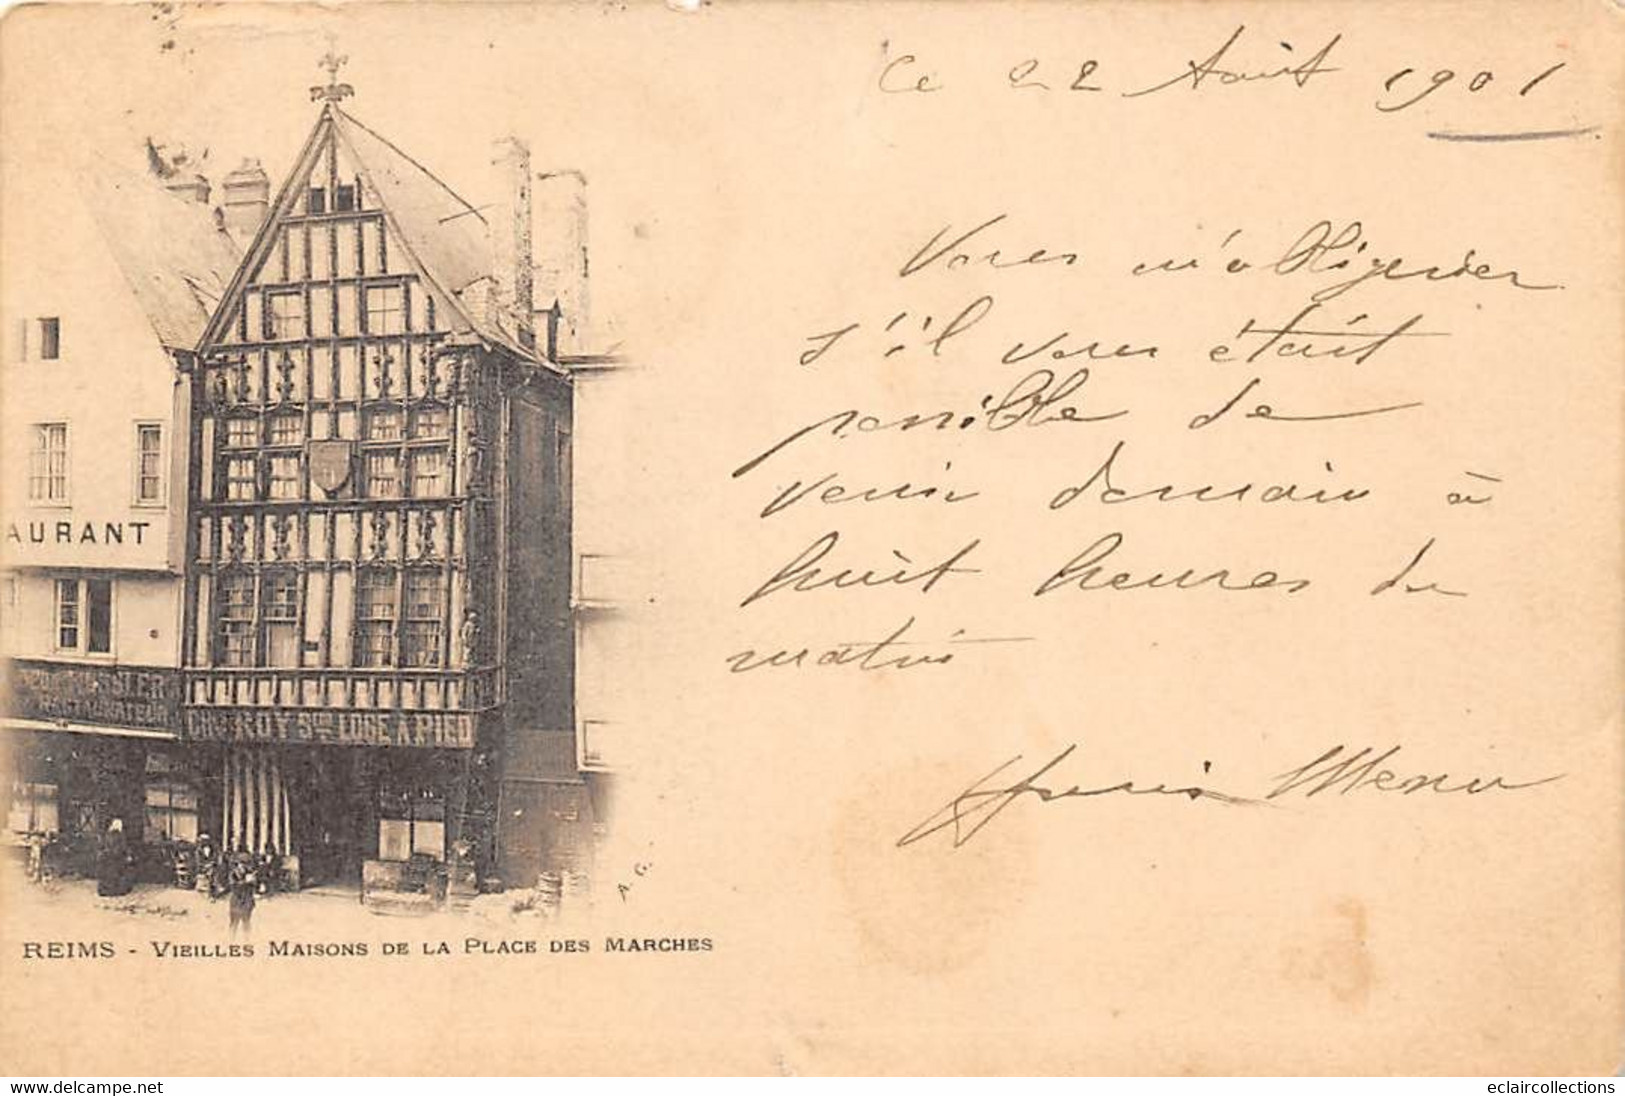 Ce 22 Août 1901
Vous m'obligerier
s'il vous était
possible de
venir demain à
huit heures du
matin
Menu
AURANT
RESTAURATEUR
ROY Sᵉᵘʳ LOGE A PIED
A. G.
REIMS - VIEILLES MAISONS DE LA PLACE DES MARCHES
delcampe.net
eclaircollections